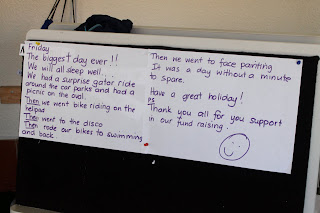 Friday
The biggest day ever!!
We will all sleep well.
We had a surprise gator ride
around the car parks and had a
picnic on the oval.
Then we went bike riding on the
helipad
Then went to the disco
Then rode our bikes to swimming
and back.
Then we went to face painting
It was a day without a minute
to spare.
Have a great holiday!
ps
Thank you all for you support
in our fund raising.